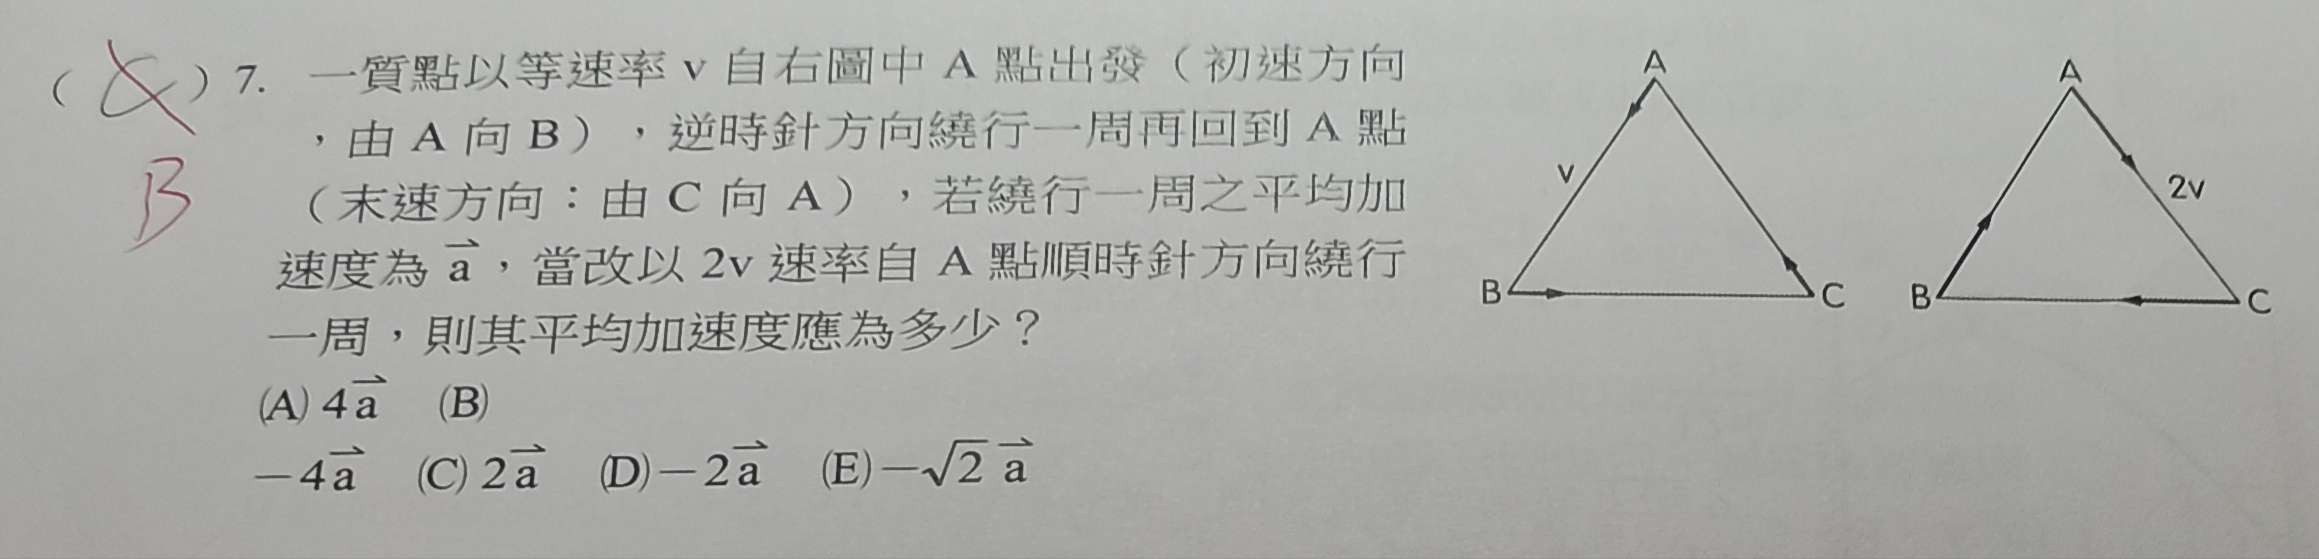 ( ) 7. 一質點以等速率 v 自右圖中 A 點出發（初速方向
，由 A 向 B），逆時針方向繞行一周再回到 A 點
（末速方向：由 C 向 A），若繞行一周之平均加
速度為 a⃗，當改以 2v 速率自 A 點順時針方向繞行
一周，則其平均加速度應為多少？
(A) 4a⃗ (B)
－4a⃗ (C) 2a⃗ (D)－2a⃗ (E)－√2 a⃗
B
A
v
B
C
A
2v
B
C